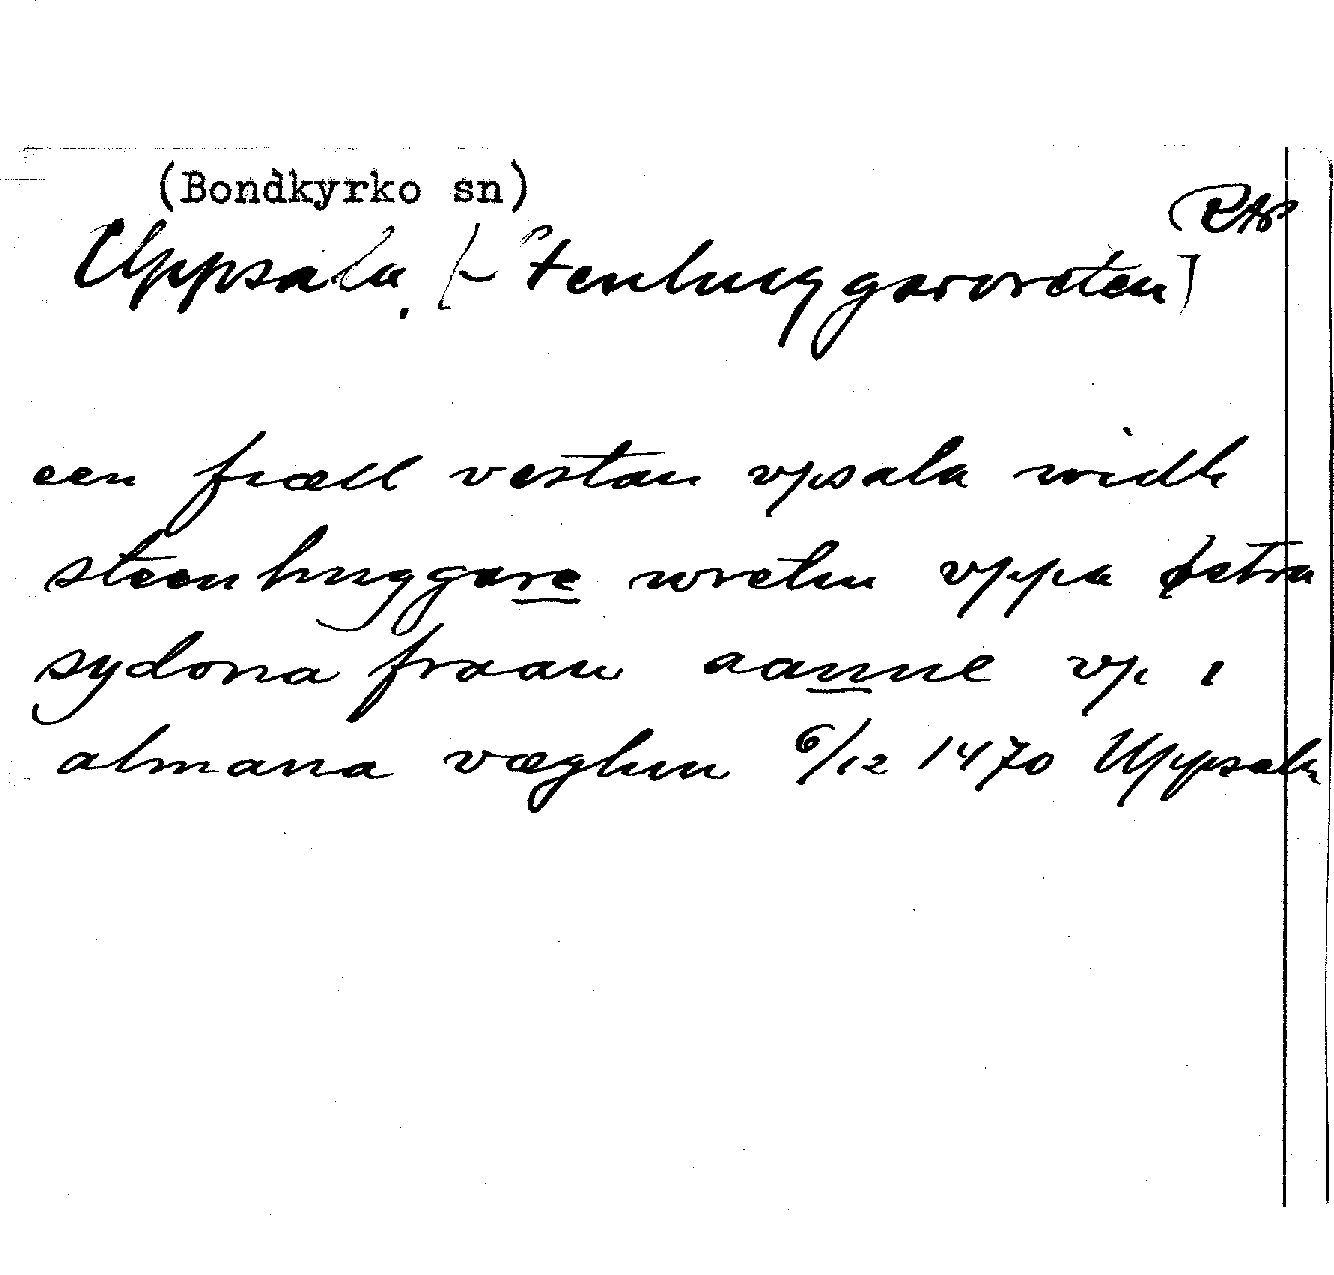 (Bondkyrko sn)
RAP
Uppsala. [- Stenhuggarvreten]
een fiæll vestan vpsala widh
steenhuggare wretin vppa østra
sydona fraan aanne vp i
almana væghin 6/12 1470 Uppsala